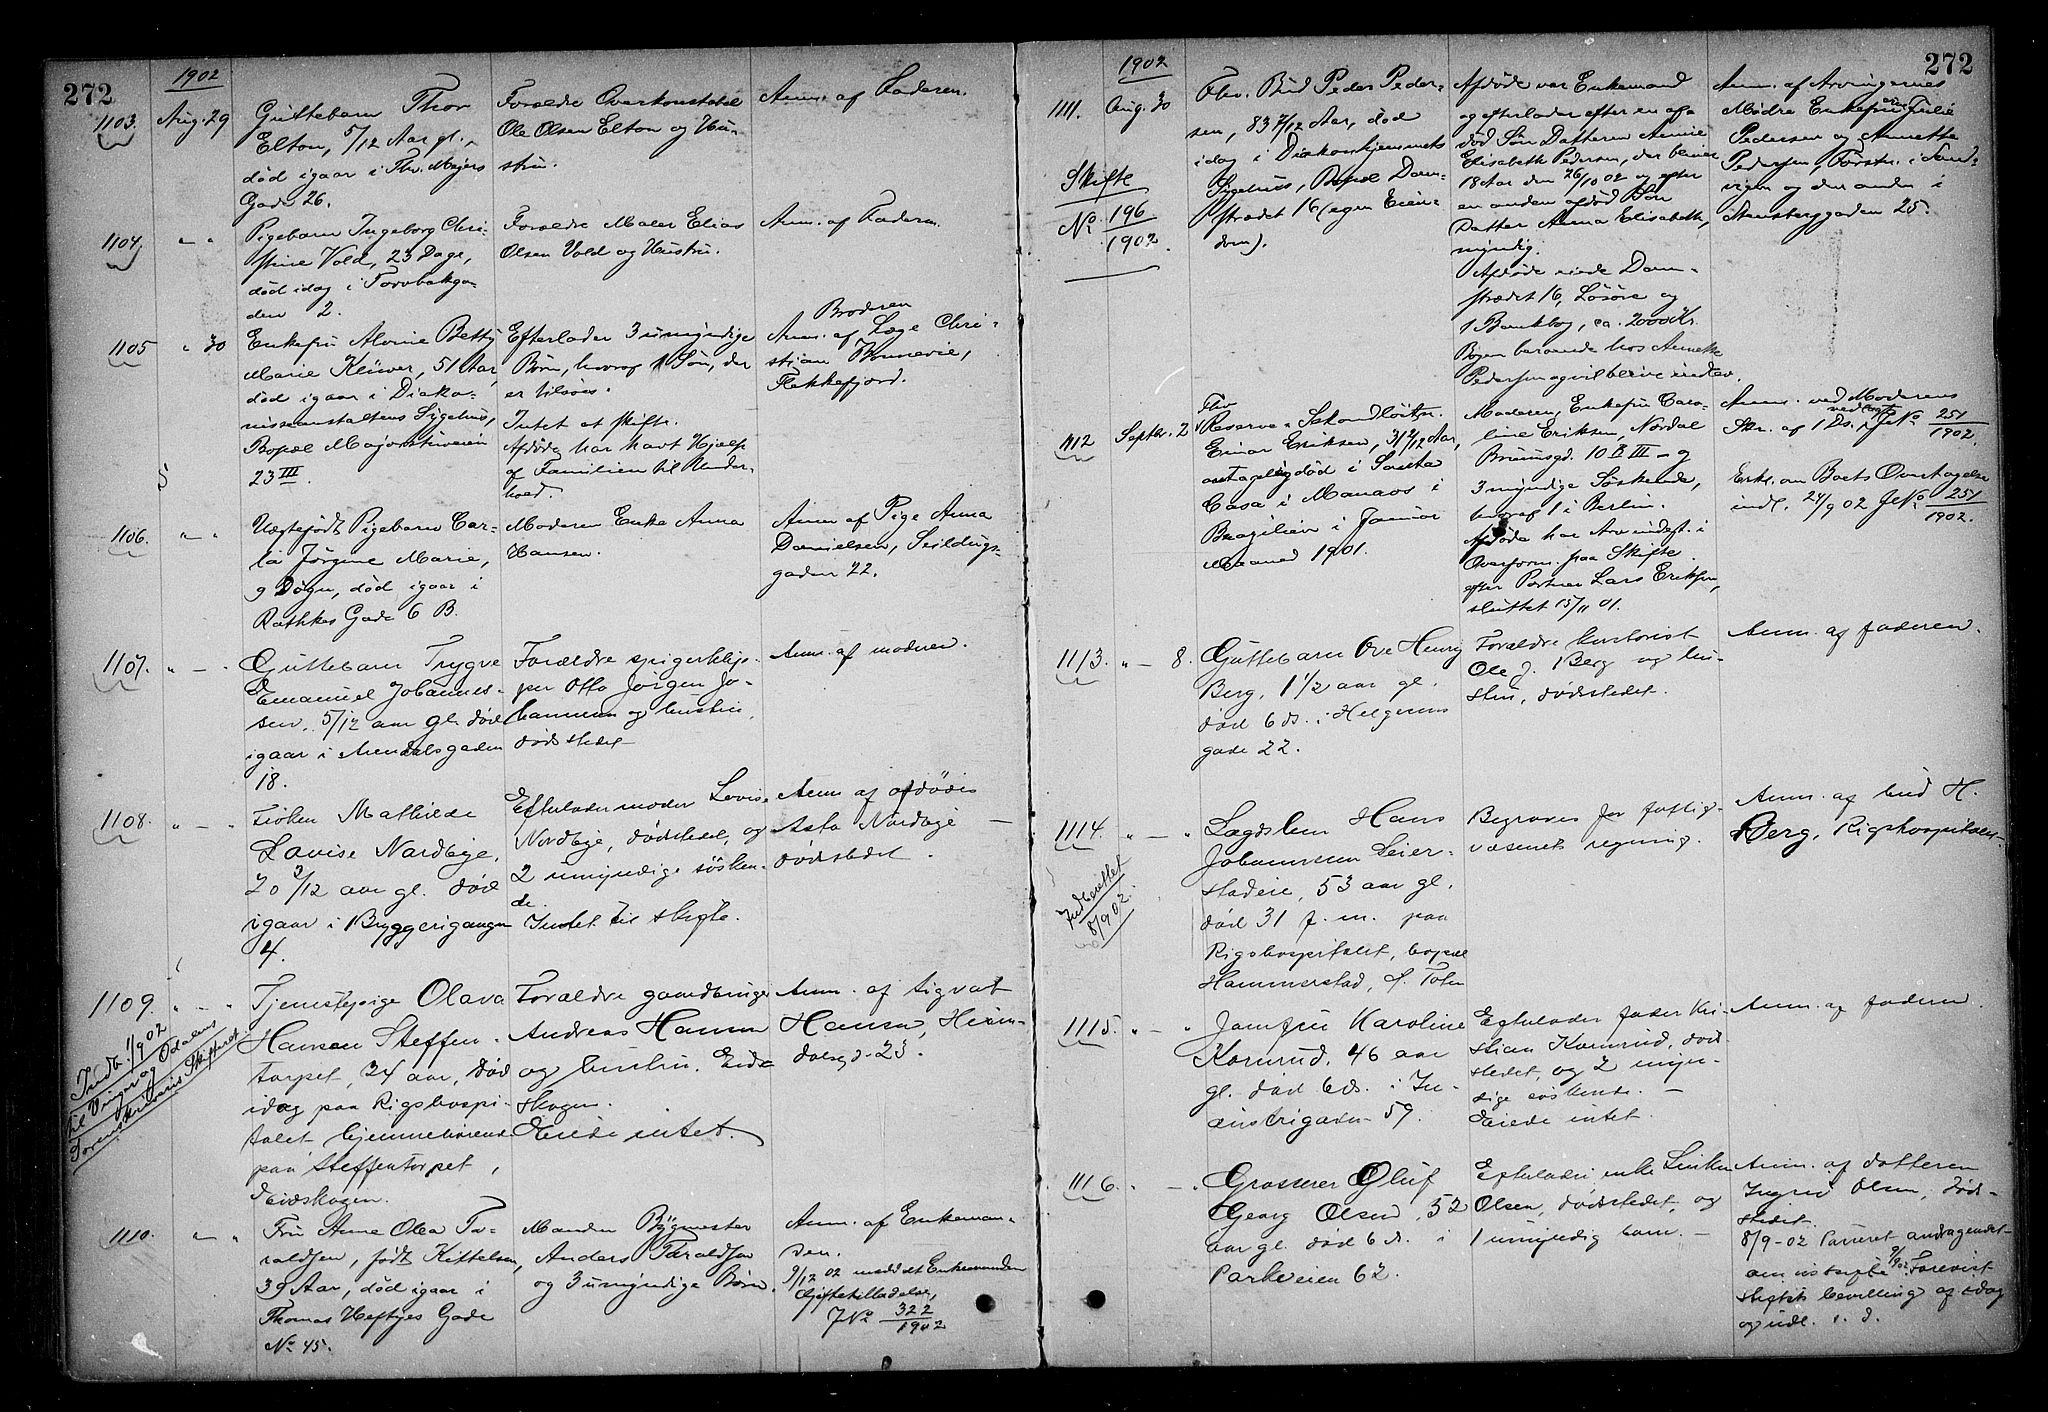 272
1902
1103. Aug. 29
Guttebarn Thor
Elton, 5/12 Aar gl.,
død igaar i Thv. Meyers
Gade 26.
Forældre Overkonstabel
Ole Olsen Elton og Hu-
stru.
Anm. af Faderen.
1104. " "
Pigebarn Ingeborg Chri-
stine Vold, 23 Dage,
død idag i Torvbakga-
den 2.
Forældre Maler Elias
Olsen Vold og Hustru.
Anm. af Faderen.
1105 " 30
Enkefru Alvine Betty
Marie Klüwer, 51 Aar,
død igaar i Diako-
nisseanstaltens Sygehus,
Bopæl Majorstuveien
23 III.
Efterlader 3 umyndige
Børn, hvoraf 1 Søn, der
er tilsøes.
Intet at skifte.
Afdøde har havt Hjælp
af Familien til Under-
hold.
Broderen
Anm. af Læge Chri-
stian Bonnevie,
Flekkefjord.
1106. " "
Uægtefødt Pigebarn Car-
la Jørgine Marie,
9 Døgn, død igaar i
Rathkes Gade 6 B.
Moderen Enke Anna
Hansen.
Anm. af Pige Anna
Danielsen, Seildugs-
gaden 22.
1107. " — "
Guttebarn Trygve
Emanuel Johannes-
sen, 5/12 aar gl. død
igaar i Arendalsgaden
18.
Forældre spigerklip-
per Otto Jørgen Jo-
hannesen og hustru,
dødsstedet
Anm. af moderen.
1108. " — "
Frøken Mathilde
Lovise Nordbye,
20 3/12 aar gl. død
igaar i Bryggerigangen
4.
Efterlader moder Lovise
Nordbye, dødsstedet, og
2 umyndige søsken-
de.
Intet til skifte.
Anm. af afdødes
Asta Nordbye —
dødsstedet.
1109. " — "
Indb. 1/9 02
til Vinger og Odalens
Sorenskriveris Skifteret.
Tjenestepige Olava
Hansen Steffen-
torpet, 34 aar, død
idag paa Rigshospi-
talet hjemmehørende
paa Steffentorpet,
Eidskogen.
Forældre gaardbruger
Andreas Hansen
og hustru. Eid-
skogen.
Eiede intet.
Anm. af Sigvat
Hansen, Heim-
dalsgd. 23.
1110. " — "
Fru Anne Olea Ta-
raldsen, født Kittelsen,
39 Aar, død igaar i
Thomas Heftyes Gade
No 45.
Manden Bygmester
Anders Taraldsen
og 3 umyndige Børn.
Anm. af Enkeman-
den.
9/12 02 meddelt Enkemanden
Giftetilladelse,
J No 322/1902
272
1902
1111. Aug. 30
Skifte
No. 196/1902.
Fhv. Bud Peder Peder-
sen, 83 7/12 Aar, død
idag i Diakonhjemmets
Sygehus, Bopæl Dam-
strædet 16 (egen Eien-
dom).
Afdøde var Enkemand
og efterlader efter en af-
død Søn Datteren Annie
Elisabeth Pedersen, der bliver
18 Aar den 26/10 02 og efter
en anden afdød Søn
Datter Anna Elisabeth,
myndig.
Afdøde eiede Dam-
strædet 16, Løsøre og
1 Bankbog, ca. 2000 Kr.
Bogen beroende hos Annette
Pedersen og vil blive indlev.
Anm. af Arvingernes
Mødre Enkefru Julie
Pedersen og Annette
Pedersen, Førstn. i Sand-
vigen og den anden i
Stensberggaden 25.
1112 Septbr. 2
Fhv
Reserve-Sekondløitn.
Einar Eriksen, 31 2/12 Aar,
antagelig død i Santa
Casa i Manaos i
Brazilien i Januar
Maaned 1901.
Moderen, Enkefru Caro-
line Eriksen, Nordal
Brunsgd. 10 B III og
3 myndige Søskende,
hvoraf 1 i Berlin.
Afdøde har Arv indest. i
Overform. paa Skifte
efter Partner Lars Eriksen,
sluttet 15/11 01.
Anm. ved Moderens
Skr. af 1 Ds. vedlagt J No 251/1902.
Erkl. om Boets Overtagelse
indl. 24/9 02 J No 251/1902.
1113. " — 8.
Guttebarn Ove Henry
Berg, 1 1/2 aar gl.
død 6 ds. i Helgesens
gade 22.
Forældre kontorist
Ole J. Berg og hu-
stru, dødsstedet.
Anm. af faderen.
1114. " — "
Indberettet
8/9 02.
Lægdslem Hans
Johannesen Seier-
stadeie, 53 aar gl.
død 31 f. m. paa
Rigshospitalet, bopæl
Hammerstad, Ø. Toten
Begraves for fattig-
væsenets regning.
Anm. af bud H.
Berg, Rigshospitalet.
1115. " — "
Jomfru Karoline
Kornrud, 46 aar
gl. død 6 ds. i In-
dustrigaden 59.
Efterlader fader Kri-
stian Kornrud, død-
stedet, og 2 myn-
dige søskende. —
Eiede intet.
Anm. af faderen.
1116. " — "
Grosserer Oluf
Georg Olsen, 52
aar gl. død 6 ds. i
Parkveien 62.
Efterlader enke Sinken
Olsen, dødsstedet, og
1 umyndig barn. —
Anm. af datteren
Ingrid Olsen, død-
stedet.
8/9-02 andragendet
om 9/9 02 Forevist
skiftets bevilling af idag
og udl. s. d.